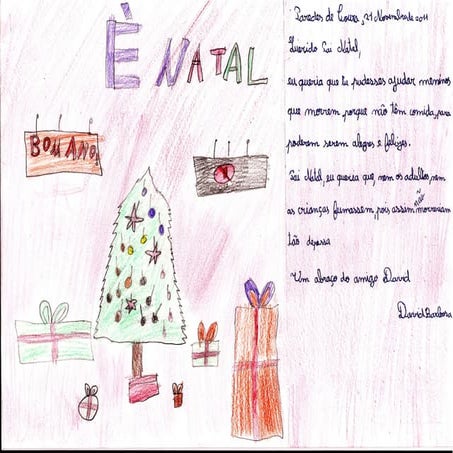 É NATAL
BOM ANO,
Paredes de Coura, 21 Novembro de 2011
Querido Pai Natal,
eu queria que tu pudesses ajudar meninos
que morrem porque não têm comida, para
poderem serem alegres e felizes.
Pai Natal, eu queria que, nem os adultos, nem
as crianças fumassem, pois assim não morreriam
tão depessa
Um abraço do amigo David
David Barbosa